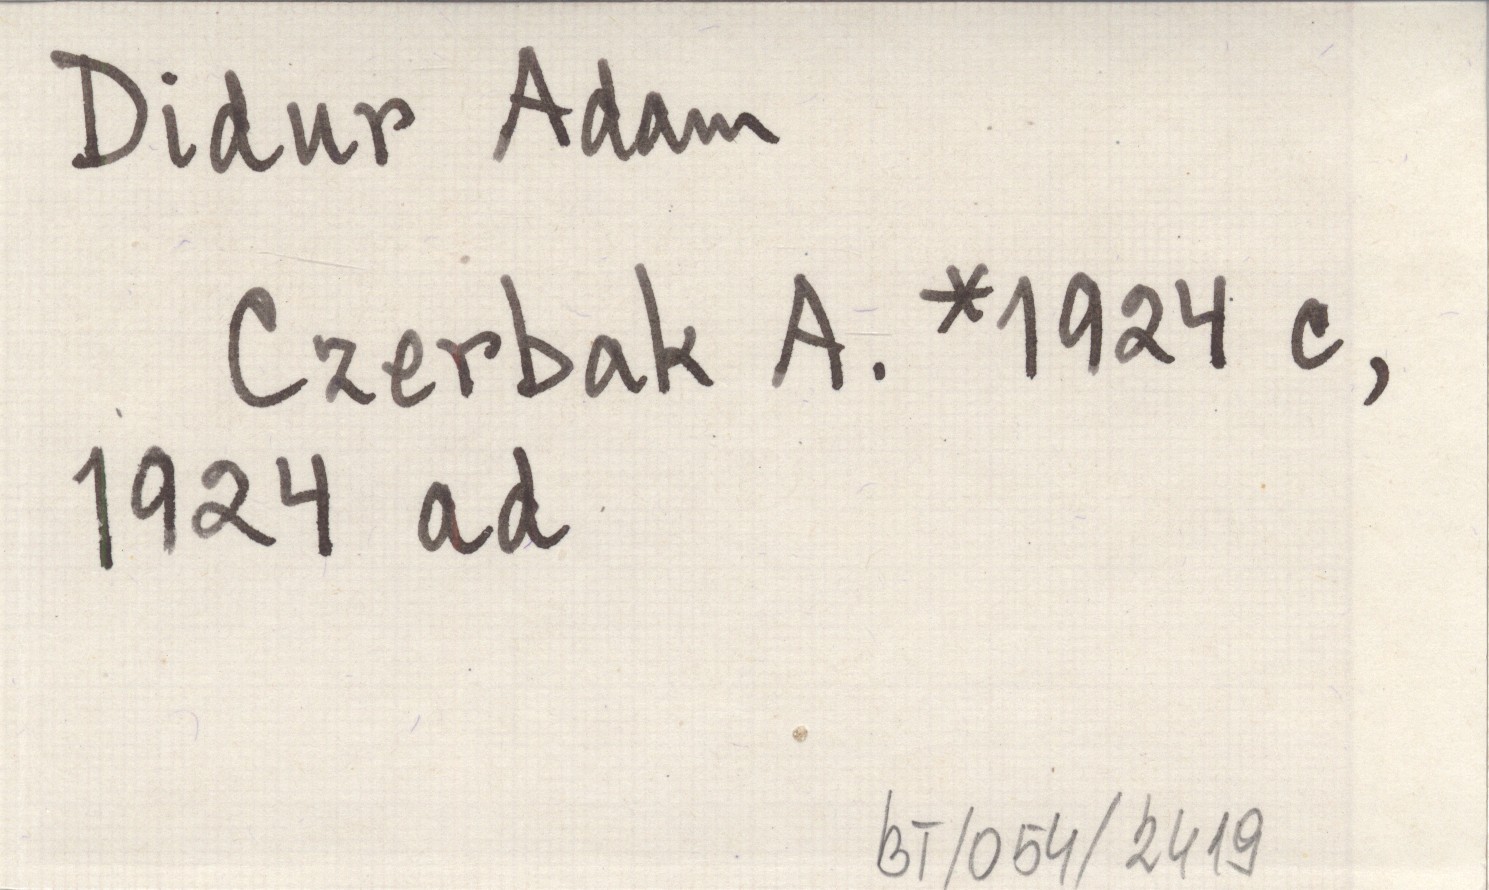 Didur Adam
Czerbak A. *1924 c,
1924 ad
BT/054/2419